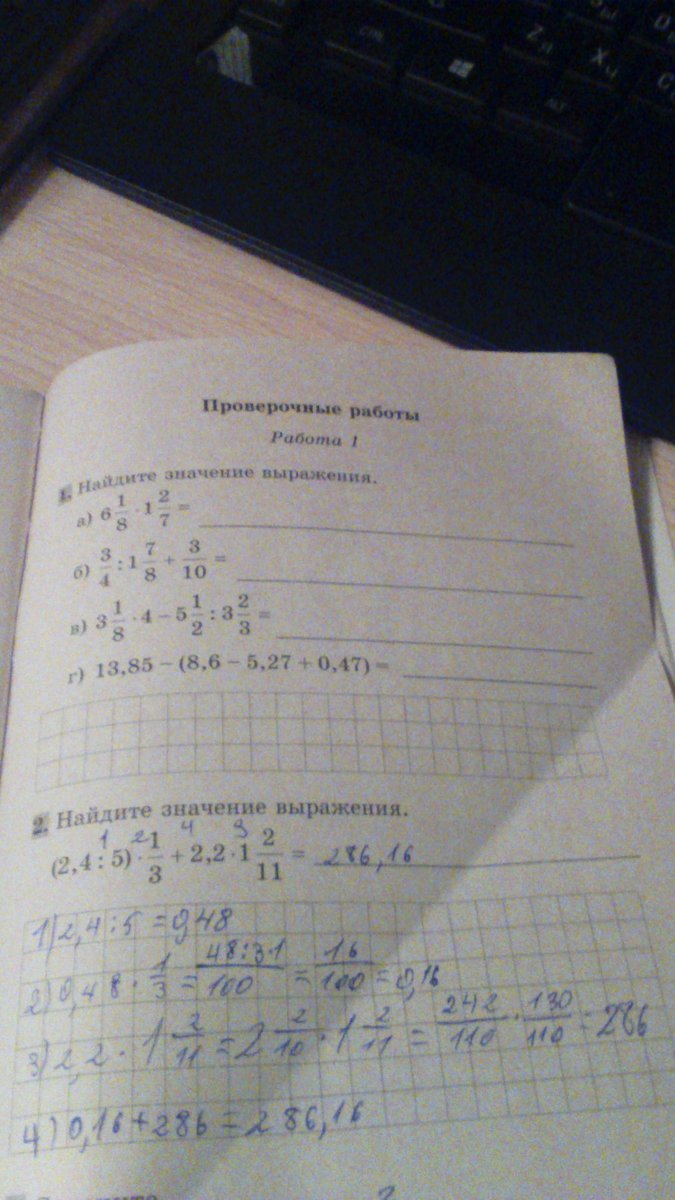 CTRL
Z Я
X Ч
C
ALT
Проверочные работы
Работа 1
1. Найдите значение выражения.
а) 6 1/8 · 1 2/7 =
б) 3/4 : 1 7/8 + 3/10 =
в) 3 1/8 · 4 − 5 1/2 : 3 2/3 =
г) 13,85 − (8,6 − 5,27 + 0,47) =
2. Найдите значение выражения.
1 2 4 3
(2,4 : 5) · 1/3 + 2,2 · 1 2/11 = 286,16
1) 2,4 : 5 = 0,48
2) 0,48 · 1/3 = 48:3·1/100 = 16/100 = 0,16
3) 2,2 · 1 2/11 = 2 2/10 · 1 2/11 = 242/110 · 130/110 = 286
4) 0,16 + 286 = 286,16